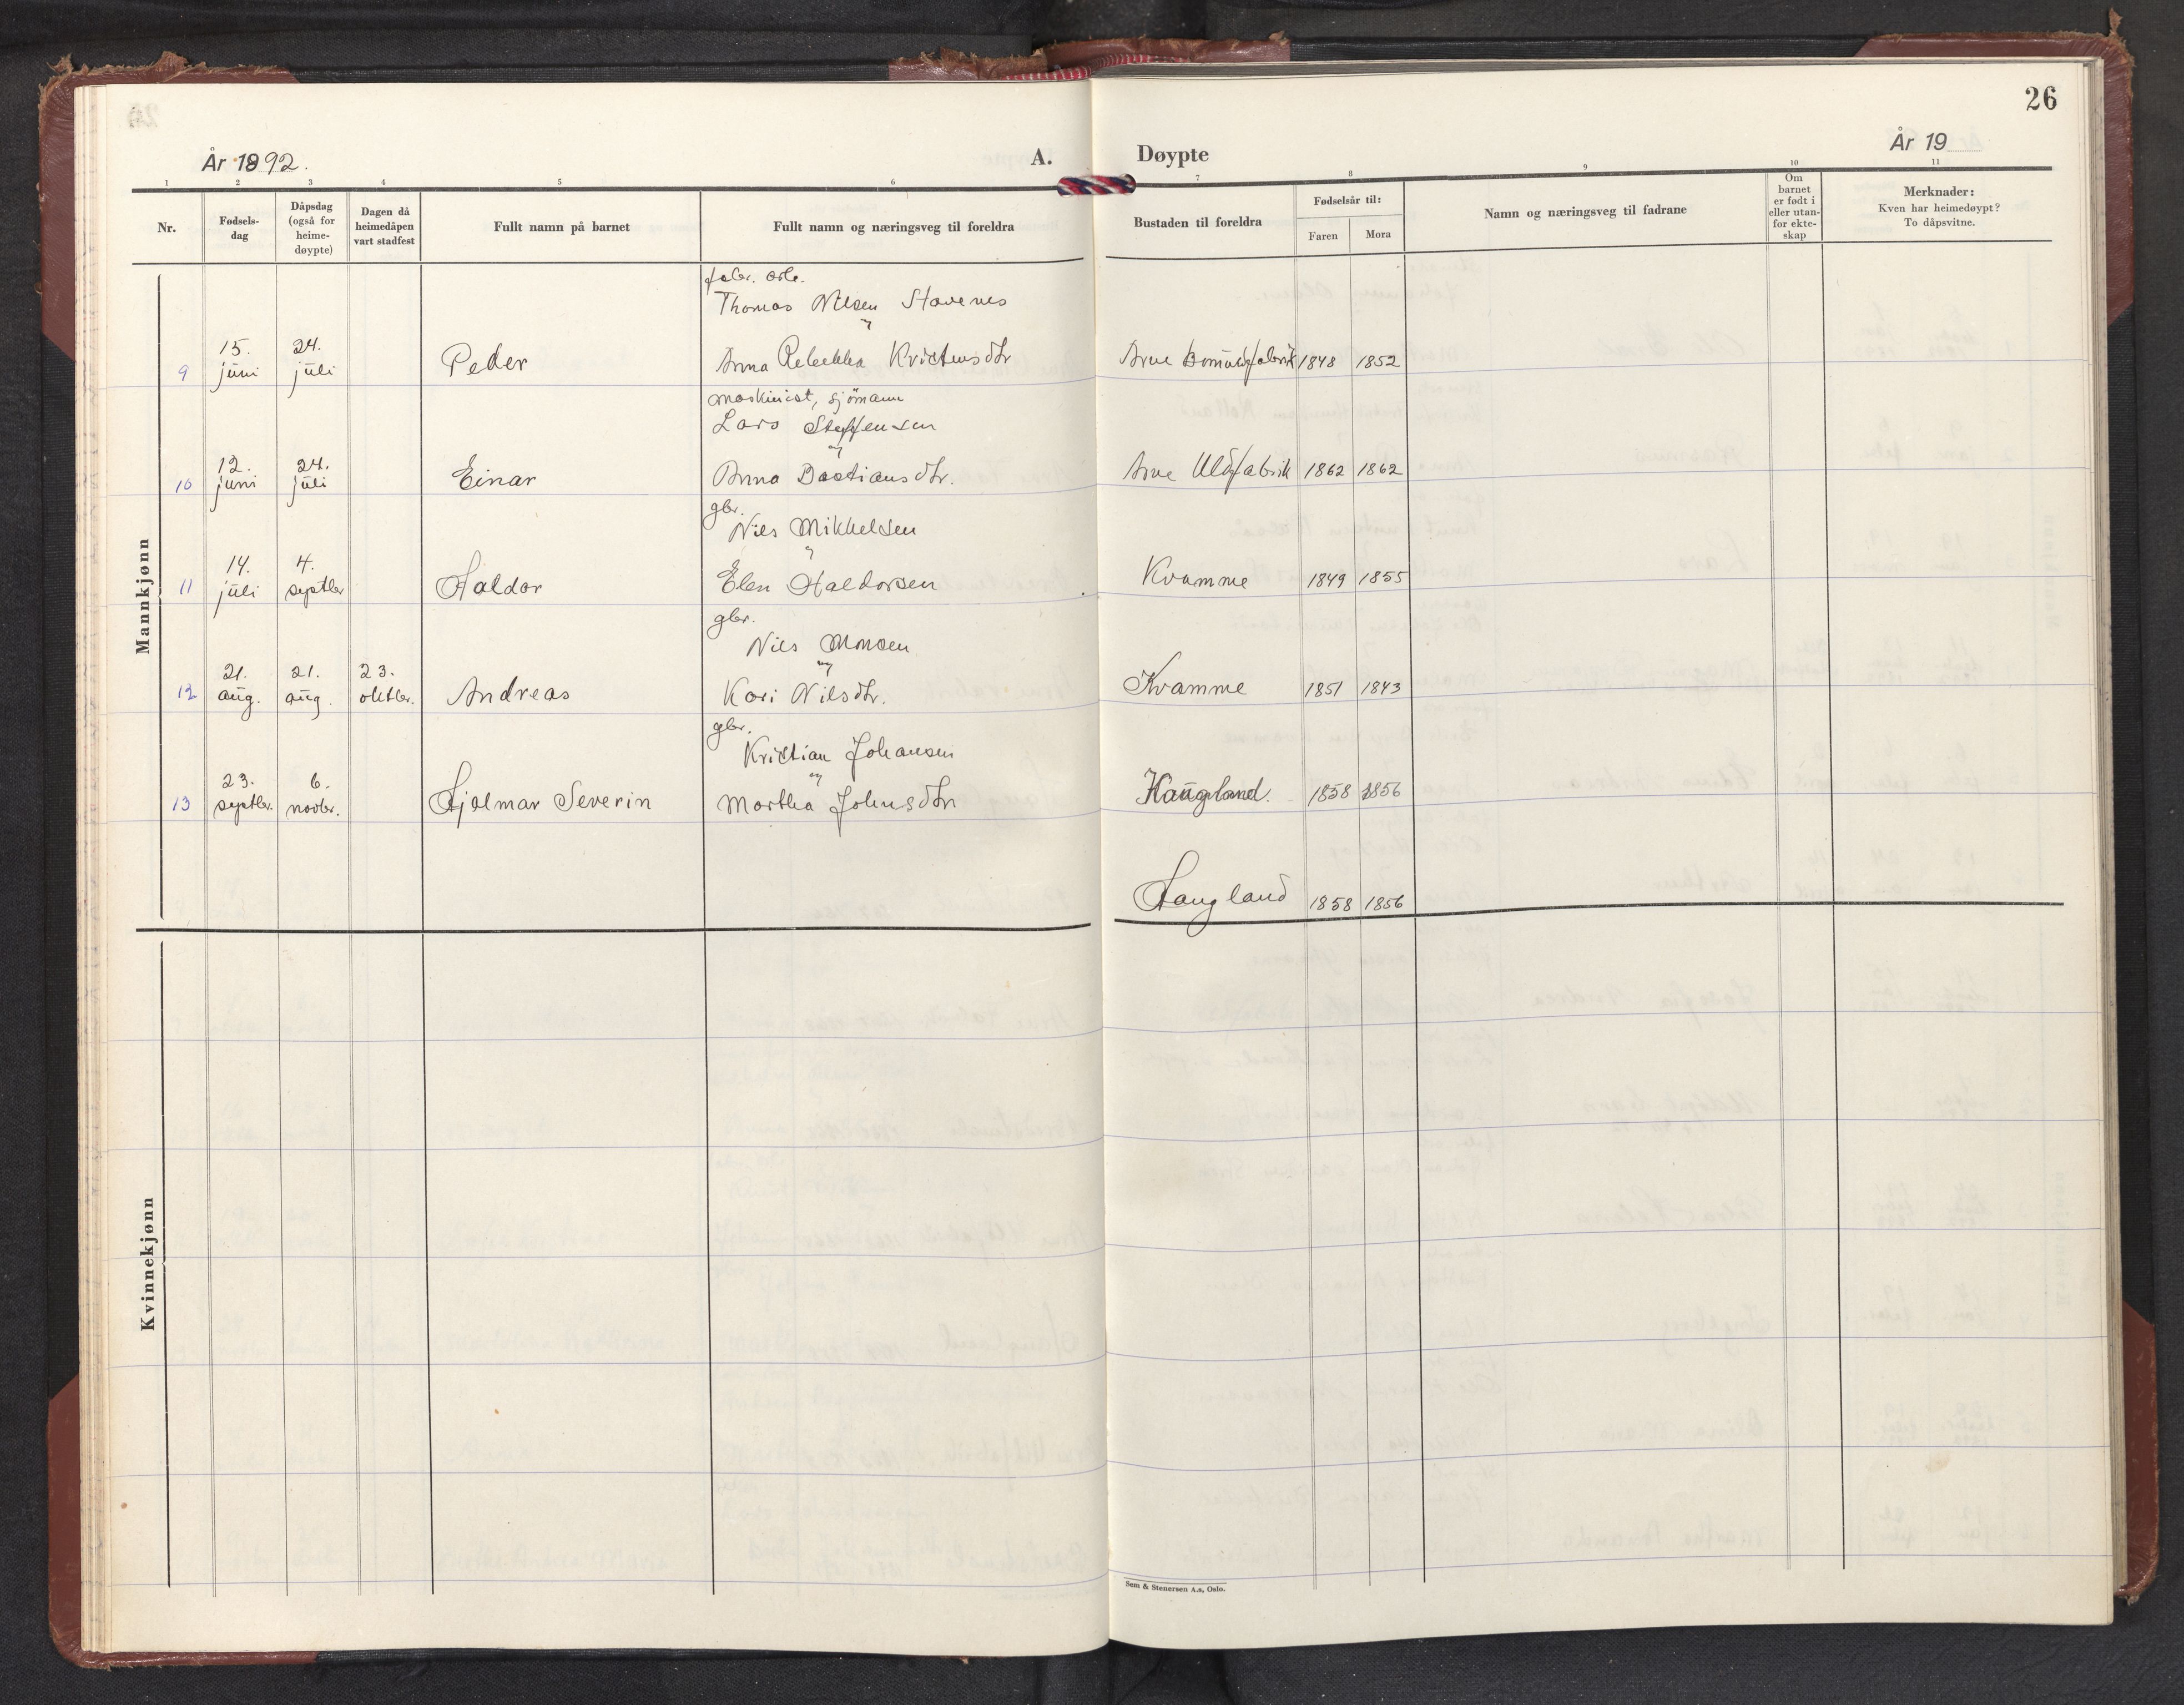 26
År 1892.
A.
Døypte
År 19
1 2 3 4 5 6 7 8 9 10 11
Nr.
Fødsels-
dag
Dåpsdag
(også for
heime-
døypte)
Dagen då
heimedåpen
vart stadfest
Fullt namn på barnet
Fullt namn og næringsveg til foreldra
Bustaden til foreldra
Fødselsår til:
Faren Mora
Namn og næringsveg til fadrane
Om
barnet
er født i
eller utan-
for ekte-
skap
Merknader:
Kven har heimedøypt?
To dåpsvitne.
Mankjønn
fabr. arb.
Thomas Nilsen Stavenes
og
9 15. juni 24. juli Peder Anna Rebekka Kristensdtr Arne Bomuldfabrik 1848 1852
maskinist, sjömann
Lars Steffensen
og
10 12. juni 24. juli Einar Anna Bastiansdtr. Arne Uldfabrik 1862 1862
gbr.
Nils Mikkelsen
og
11 14. juli 4. septbr Haldor Elen Haldorsen Kvamme 1849 1855
gbr.
Nils Monsen
og
12 21. aug. 21. aug. 23. oktbr. Andreas Kari Nilsdtr. Kvamme 1851 1843
gbr.
Kristian Johansen
og
13 23. septbr. 6. novbr. Hjalmar Severin Martha Johnsdtr Haugland. 1858 1856
Haugland 1858 1856
Kvinnekjønn
Sem & Stenersen A.s, Oslo.